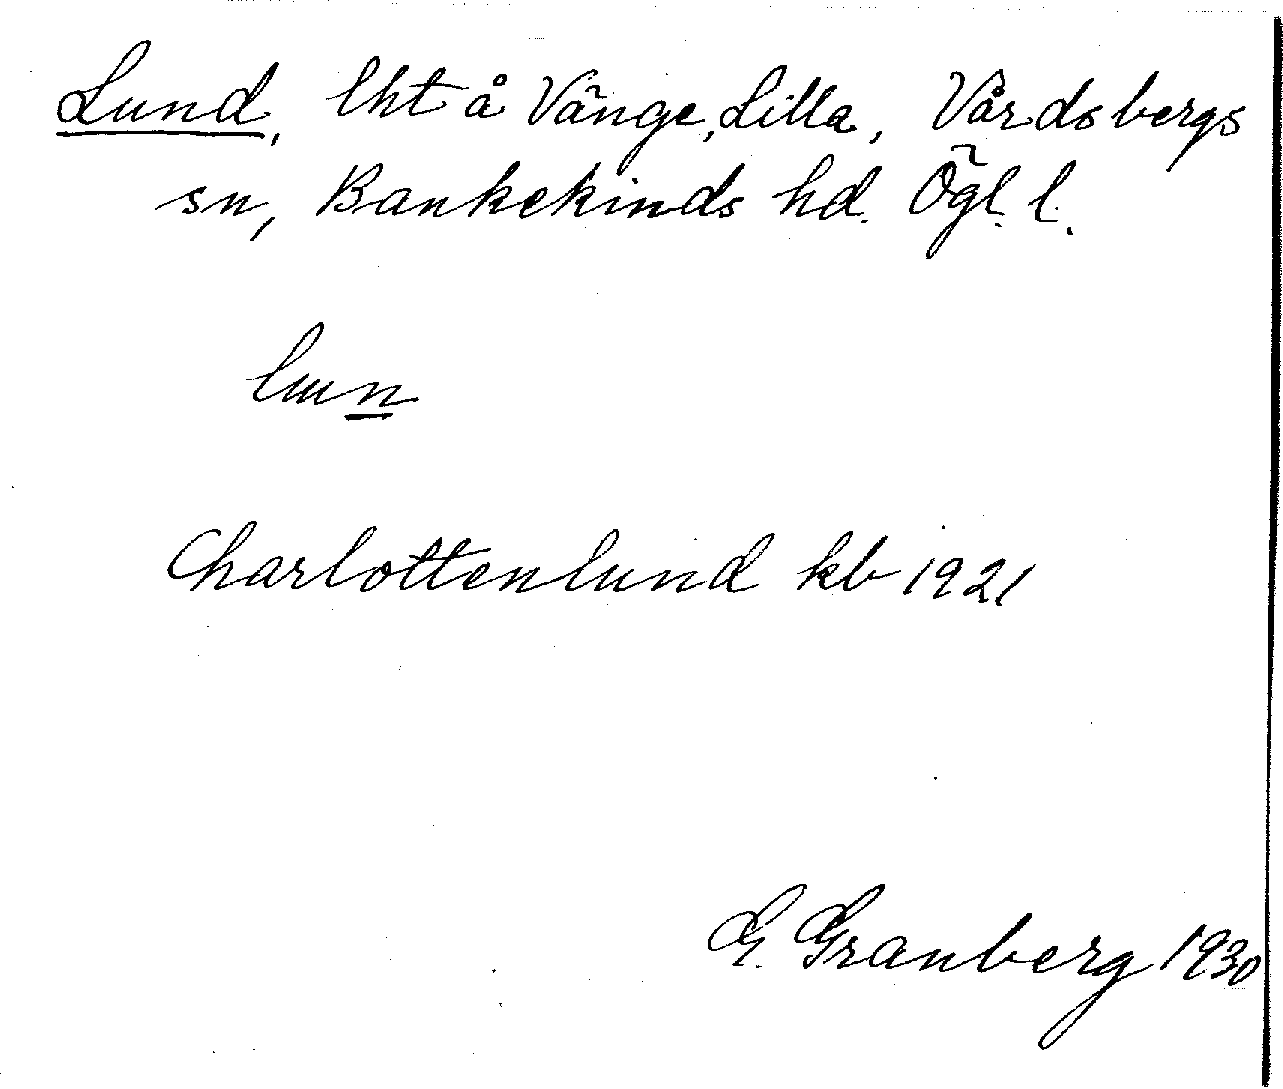 Lund, lht å Vänge, Lilla, Vårdsbergs
sn, Bankekinds hd. Ögl. l.
lun
Charlottenlund kb 1921
G. Granberg 1930